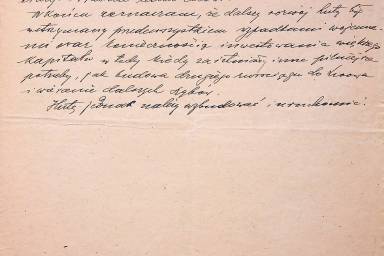 W końcu zaznaczam, że dalszy rozwój huty był
wstrzymany przedewszystkiem wypadkami wojenne-
mi oraz koniecznością inwestowania większego
kapitału w tedy kiedy zaistniały inne pilniejsze
potrzeby, jak budowa drugiego rurociągu do Lwowa
i wiercenie dalszych szybów.
Hutę jednak należy wybudować i uruchomić.